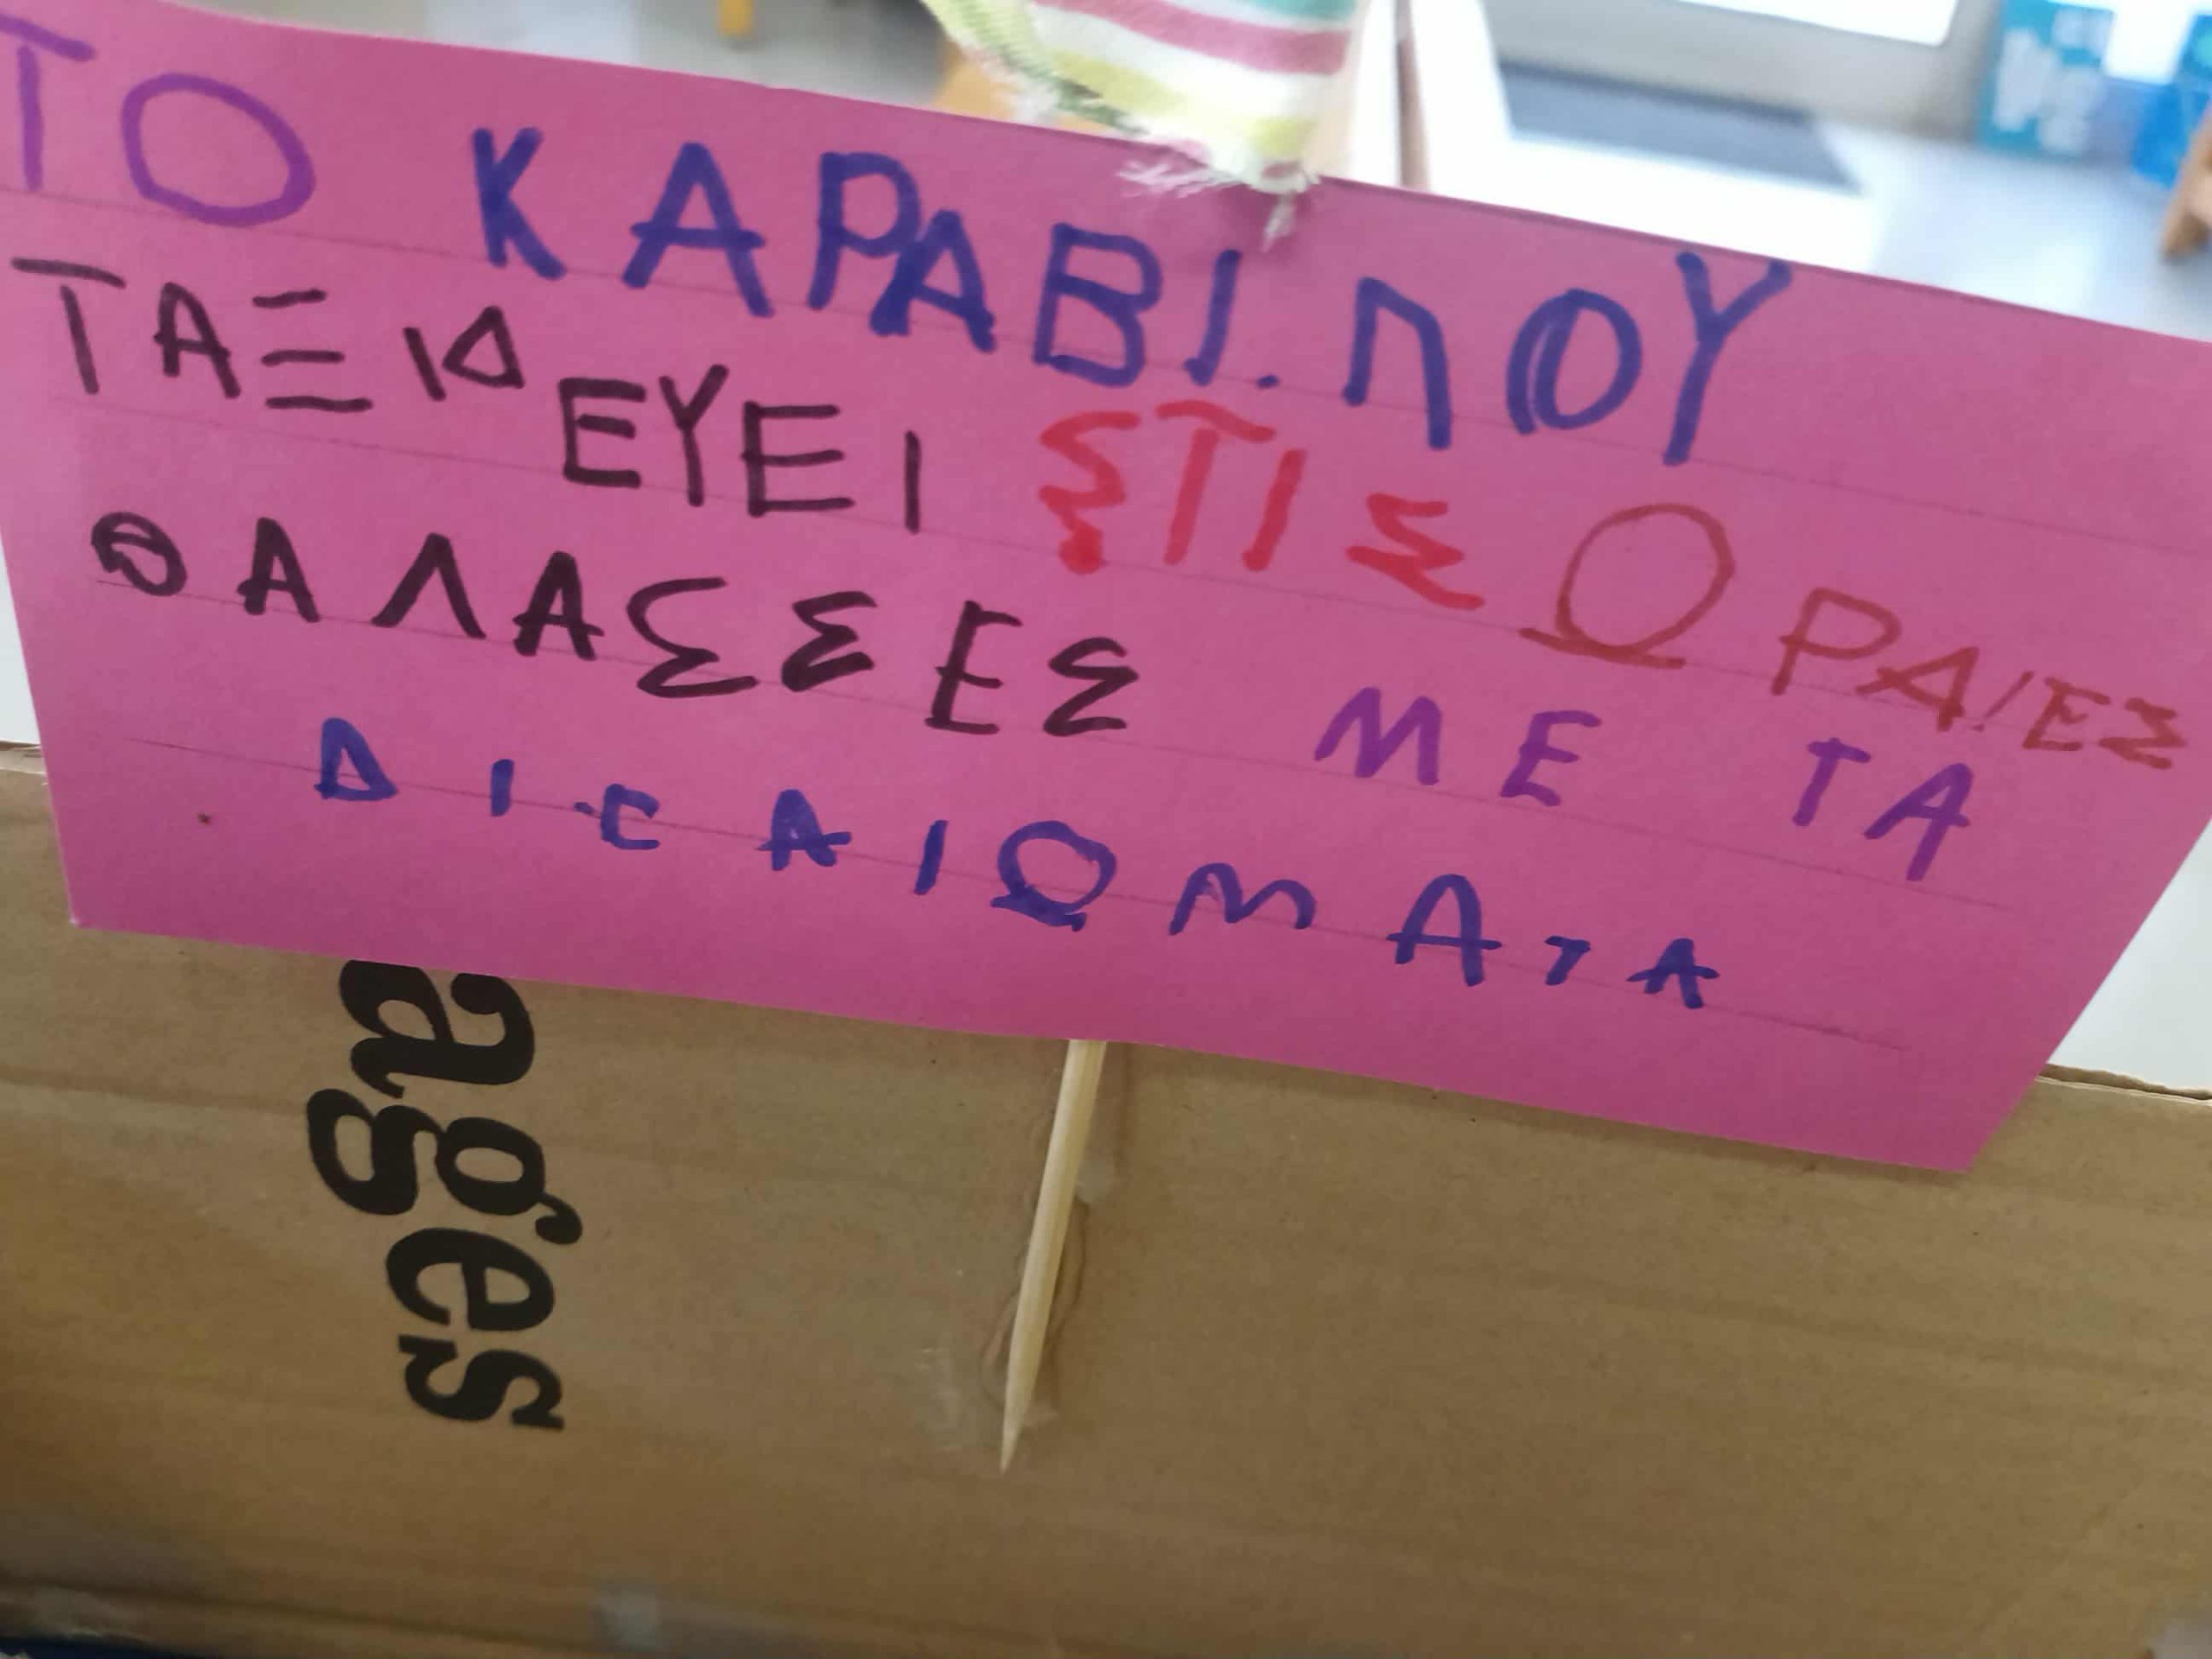 ΤΟ ΚΑΡΑΒΙ. ΠΟΥ
ΤΑΞΙΔΕΥΕΙ ΣΤΙΣ ΩΡΑΙΕΣ
ΘΑΛΑΣΣΕΣ ΜΕ ΤΑ
ΔΙΚΑΙΩΜΑΤΑ
ages